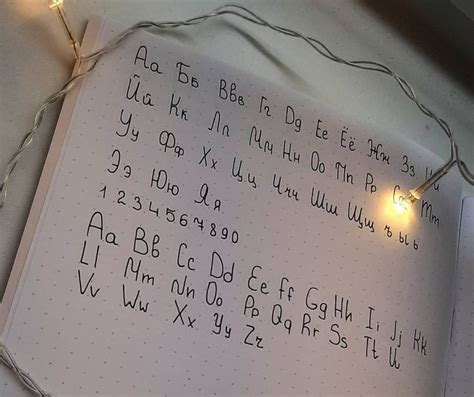 Аа Бб Ввв Гг Дд Ее Ёё Жж Зз Ии
Йй Кк Лл Мм Нн Оо Пп Рр Сс Тт
Уу Фф Хх Цц Чч Шш Щщ ъ ы ь
Ээ Юю Яя
1 2 3 4 5 6 7 8 9 0
Aa Bb Cc Dd Ee Ff Gg Hh Ii Jj Kk
Ll Mm Nn Oo Pp Qq Rr Ss Tt U
Vv Ww Xx Yy Zz